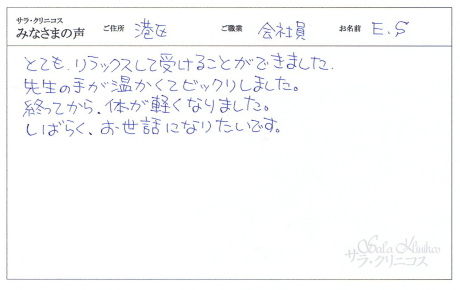 サラ・クリニコス
みなさまの声 ご住所 港区 ご職業 会社員 お名前 E.S
とても、リラックスして受けることができました。
先生の手が温かくてビックリしました。
終ってから、体が軽くなりました。
しばらく、お世話になりたいです。
Sala Klinikos
サラ・クリニコス